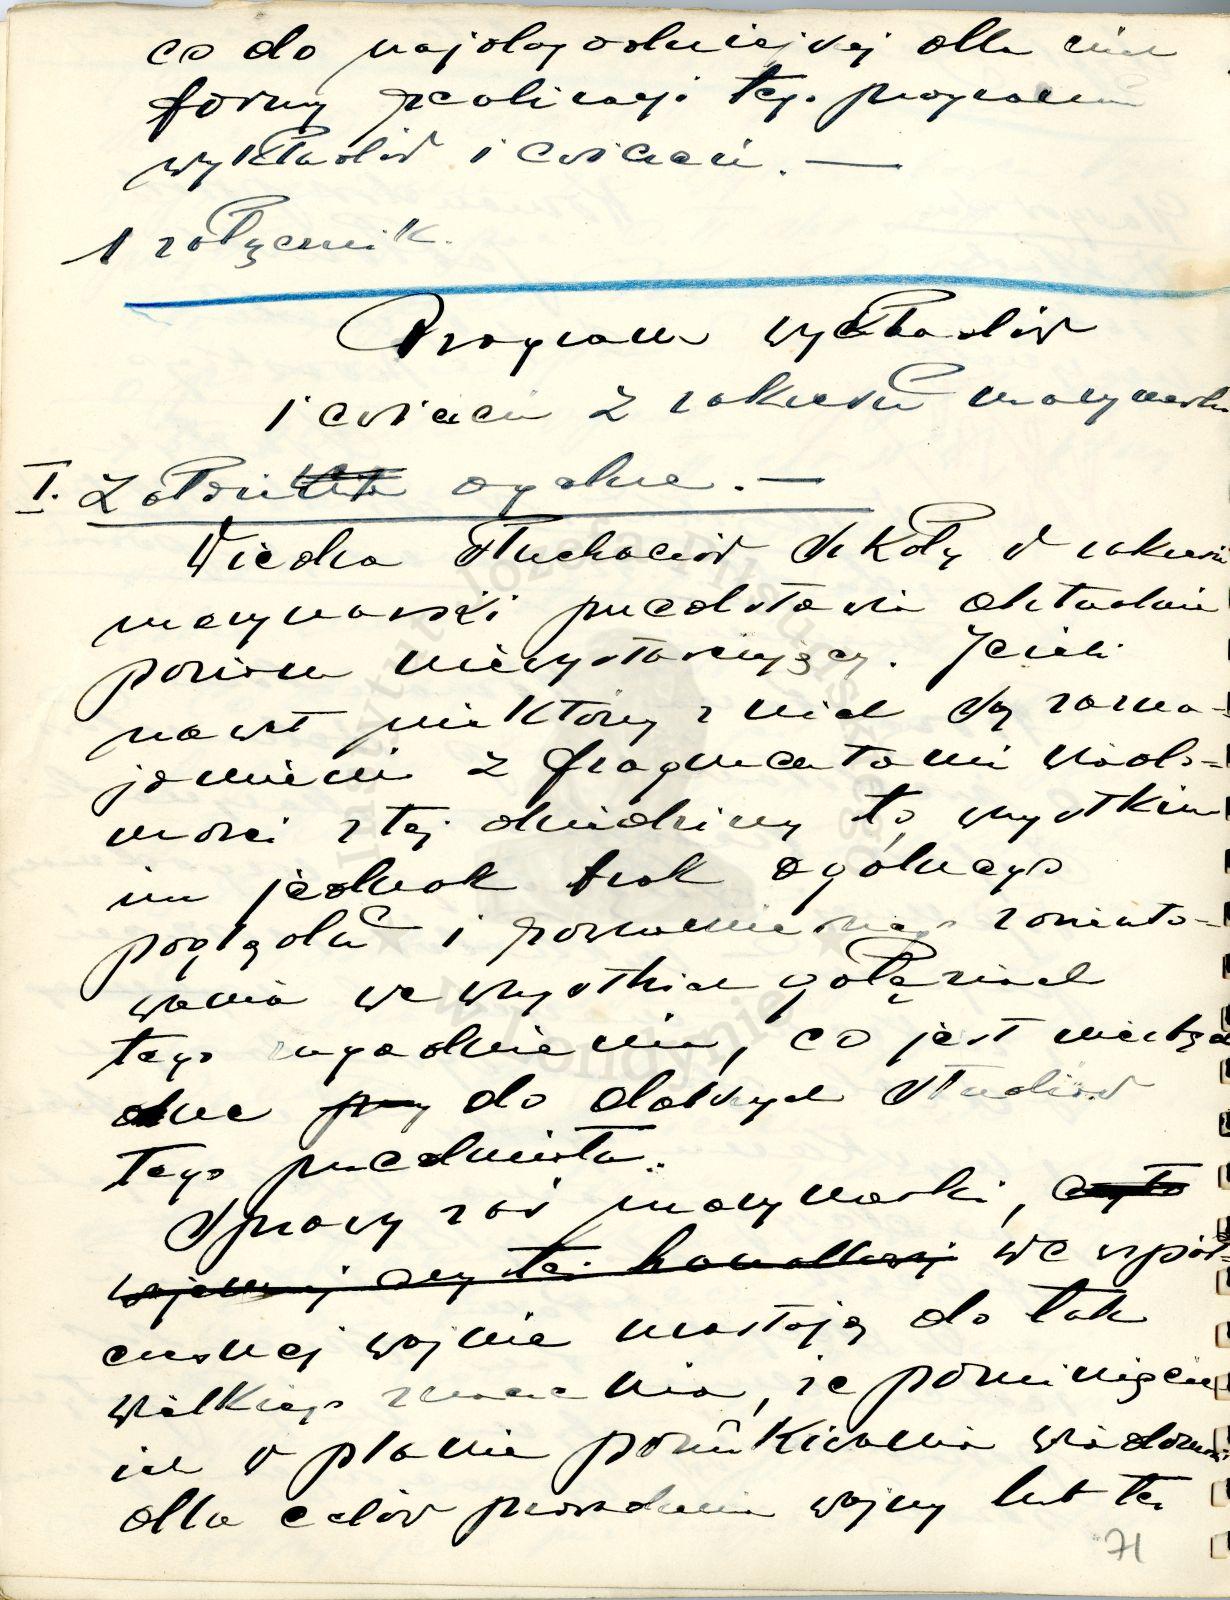 co do najdogodniejszej dla nich
formy realizacji tego programu
wykładów i ćwiczeń. —
1 załącznik.
Program wykładów
i ćwiczeń z zakresu marynarki
I. Założenia ogólne. —
Wiedza słuchaczów Szkoły w zakresie
marynarki przedstawia aktualnie
poziom niewystarczający. Jeżeli
nawet niektórzy z nich są zazna-
jomieni z fragmentami wiado-
mości z tej dziedziny to wszystkim
im jednak brak ogólnego
poglądu i zoriento-
wania we wszystkich gałęziach
tego zagadnienia, co jest niezbę
dne przy do dalszych studiów
tego przedmiotu.
Sprawy zaś marynarki, czysto
wojennej czy też handlowej we współ-
czesnej wojnie urastają do tak
wielkiego znaczenia, że pominięcie
ich w planie poszukiwania wiadomości
dla celów prowadzenia wojny lub też
71
Instytut Józefa Piłsudskiego
w Londynie